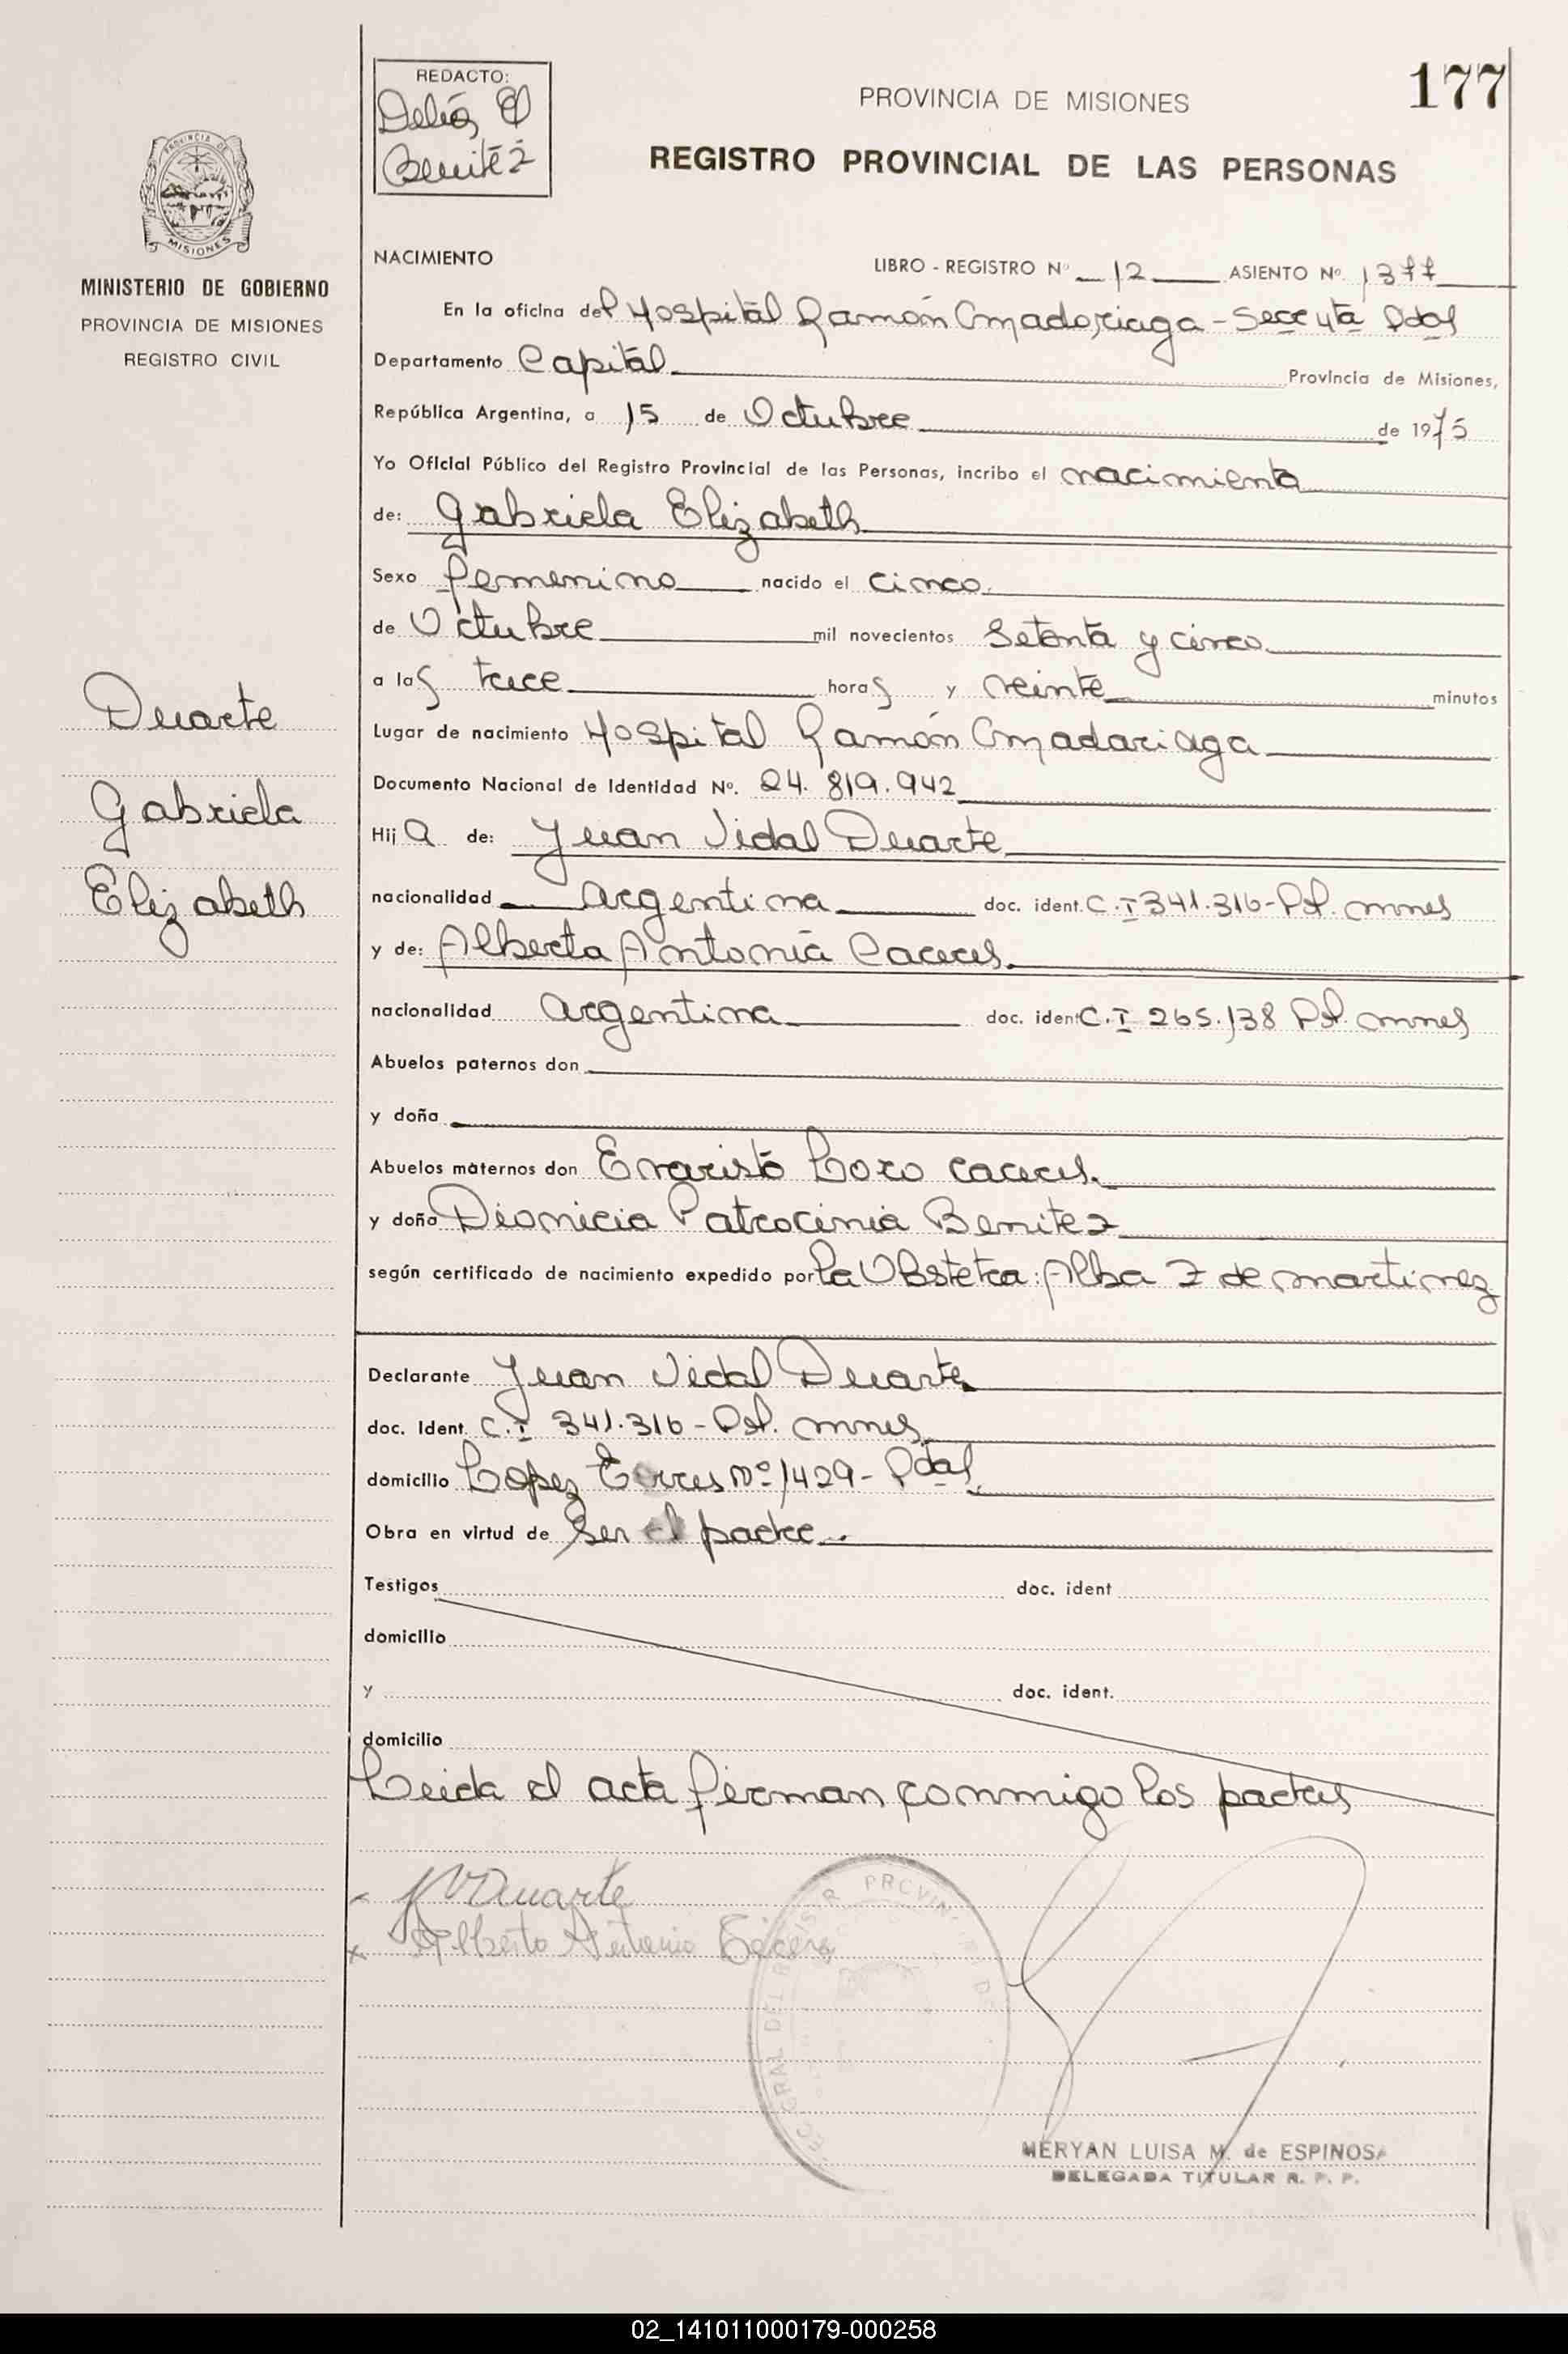 177
REDACTO:
Delia
Benitez
PROVINCIA DE MISIONES
REGISTRO PROVINCIAL DE LAS PERSONAS
PROVINCIA DE
MISIONES
MINISTERIO DE GOBIERNO
PROVINCIA DE MISIONES
REGISTRO CIVIL
NACIMIENTO LIBRO - REGISTRO Nº 12 ASIENTO Nº. 1377
En la oficina del Hospital Ramón Madariaga - Pdas
Departamento Capital Provincia de Misiones,
República Argentina, a 15 de Octubre de 1975
Yo Oficial Público del Registro Provincial de las Personas, incribo el nacimiento
de: Gabriela Elizabeth
Sexo femenino nacido el cinco
de Octubre mil novecientos Setenta y cinco
a las trece horas y veinte minutos
Lugar de nacimiento Hospital Ramón Madariaga
Documento Nacional de Identidad Nº. 24.819.942
Hija de: Juan Vidal Duarte
nacionalidad argentina doc. ident. C.I 341.316 - Pol. mnes
y de: Alberta Antonia Caceres.
nacionalidad argentina doc. ident C.I 265.138 Pol. mnes
Abuelos paternos don
y doña
Abuelos maternos don Evaristo Loro caceres.
y doña Dionicia Patrocinia Benitez
según certificado de nacimiento expedido por la Obstetra: Alba Z de martinez
Declarante Juan Vidal Duarte
doc. Ident. C.I 341.316 - Pol. mnes
domicilio Lopez Torres Nº 1429 - Pdas
Obra en virtud de Ser el padre
Testigos doc. ident
domicilio
y doc. ident.
domicilio
Leida el acta firman conmigo los padres
Duarte
Gabriela
Elizabeth
JVDuarte
MERYAN LUISA M. de ESPINOSA
DELEGADA TITULAR R. P. P.
02_141011000179-000258